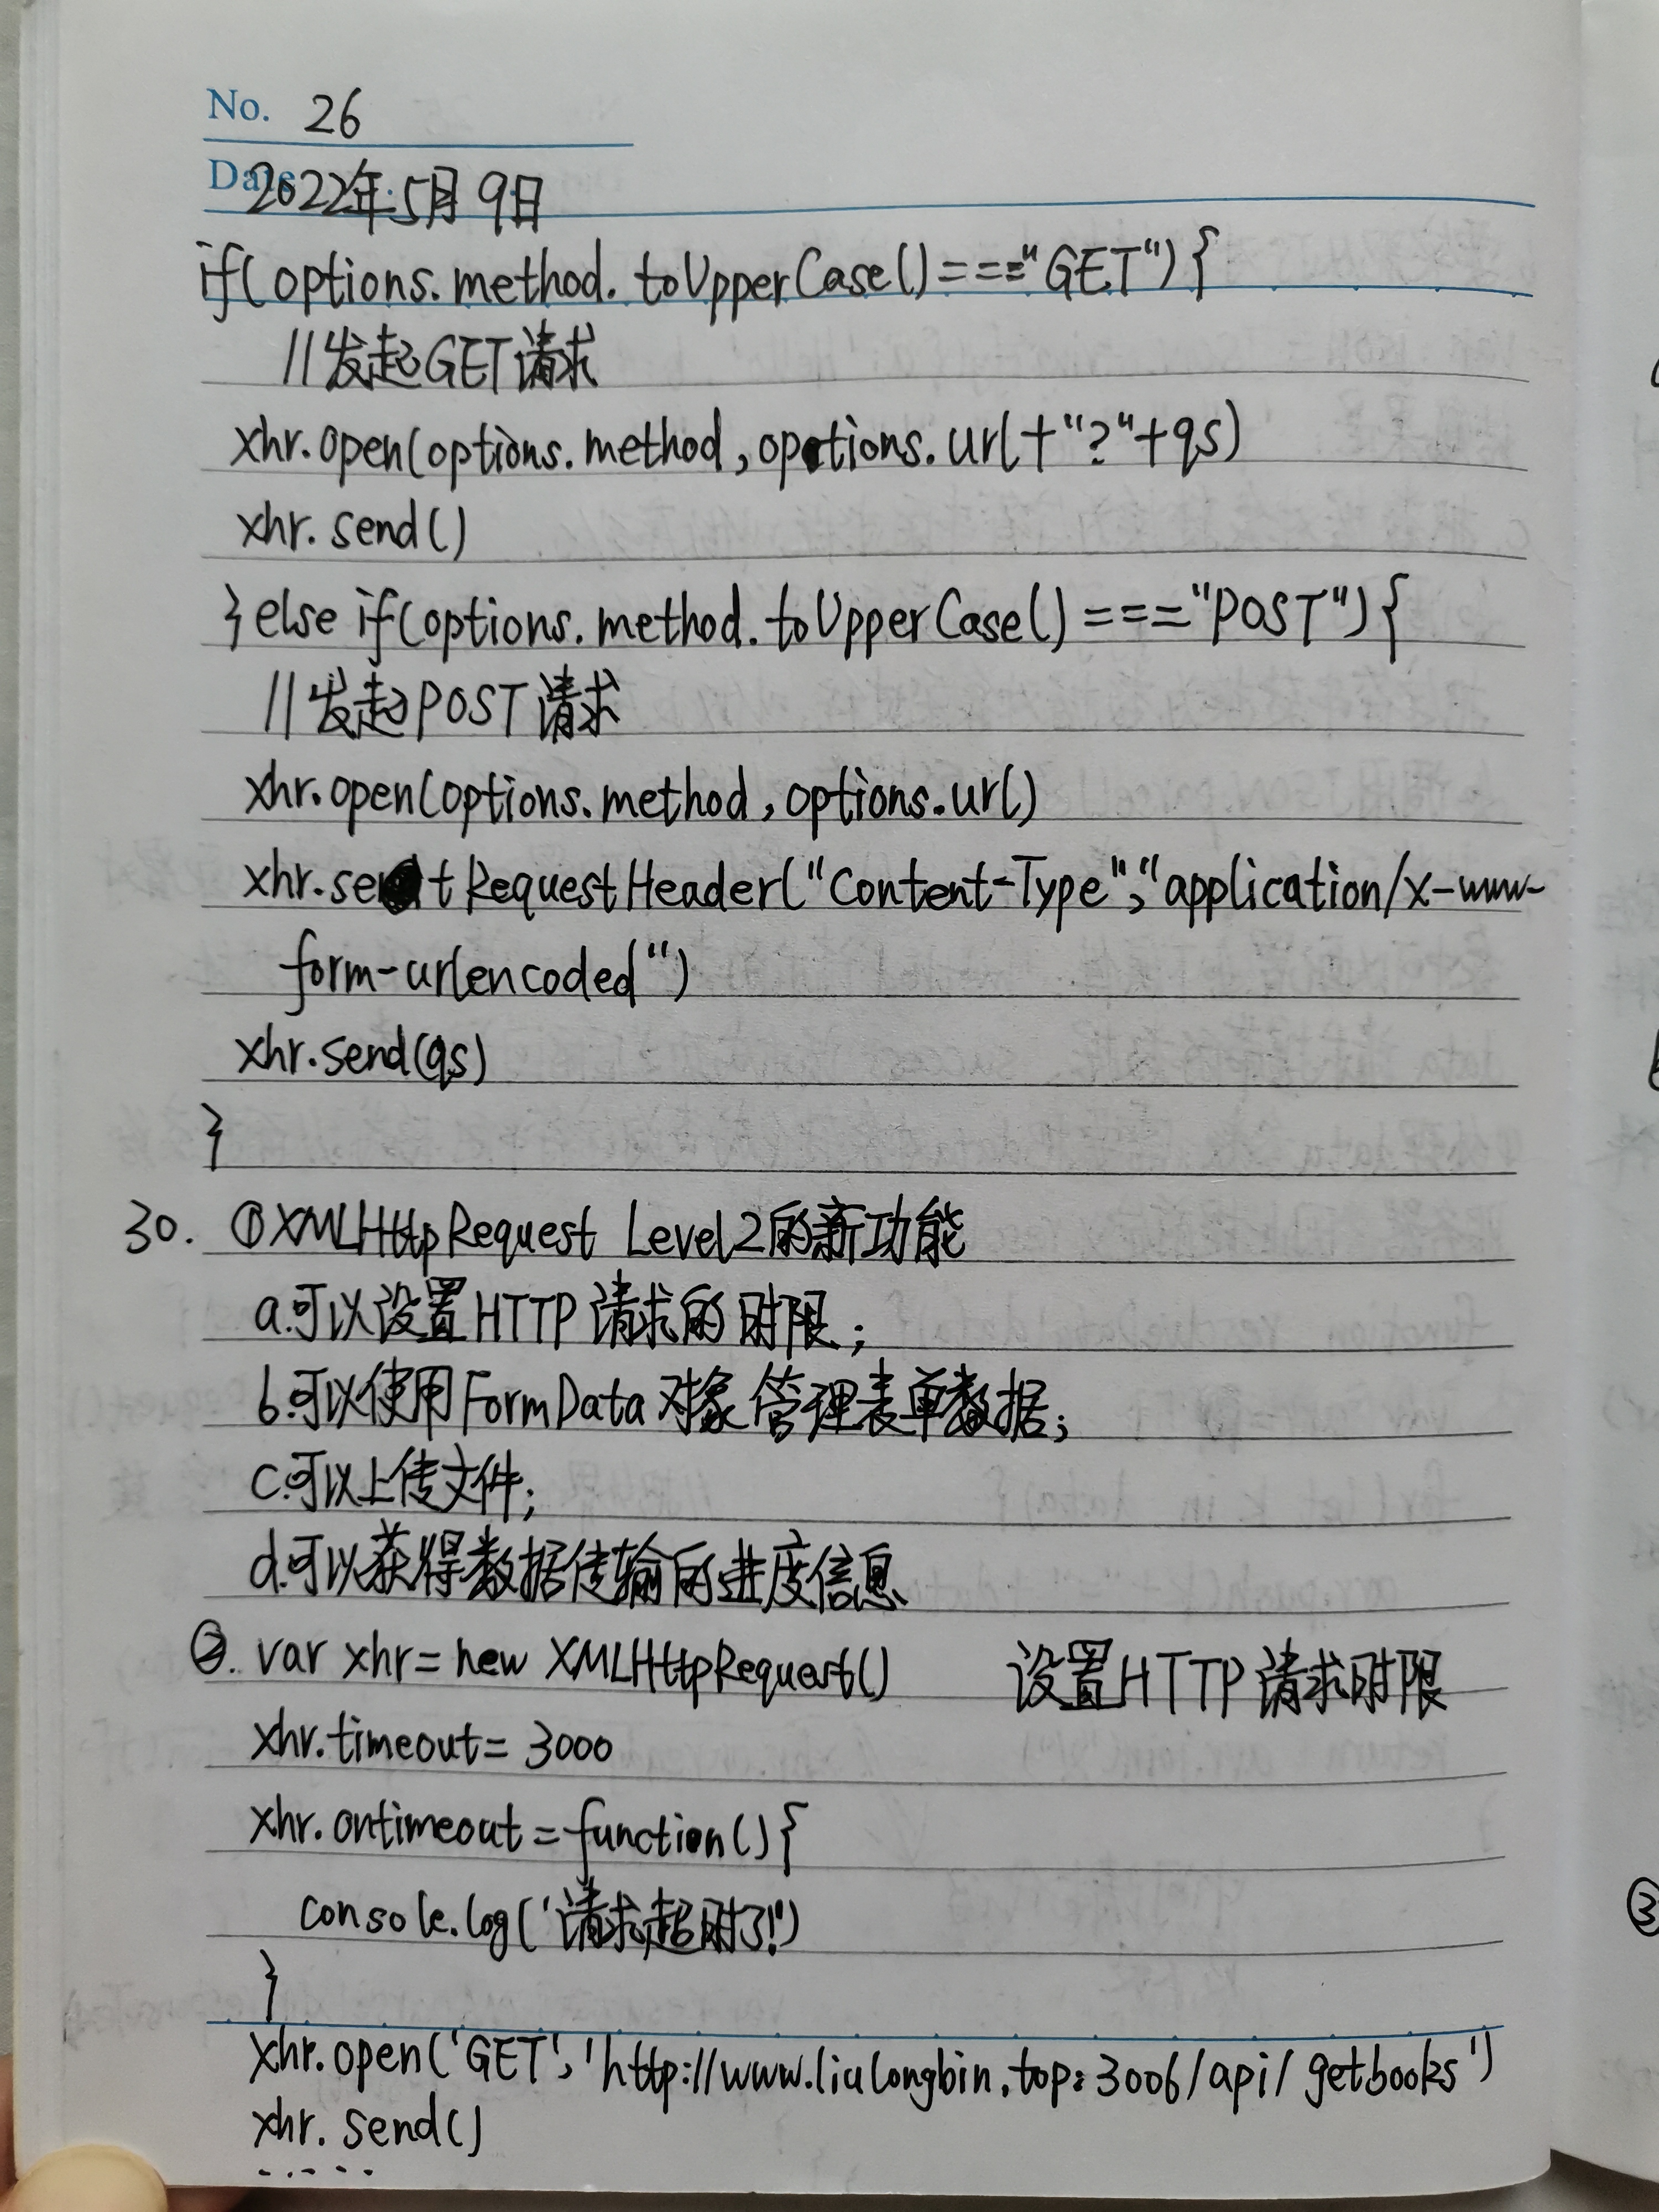 No. 26
Date 2022年5月9日
if(options.method.toUpperCase()==="GET"){
//发起GET请求
xhr.open(options.method,options.url+"?"+qs)
xhr.send()
}else if(options.method.toUpperCase()==="POST"){
//发起POST请求
xhr.open(options.method,options.url)
xhr.setRequestHeader("Content-Type","application/x-www-
form-urlencoded")
xhr.send(qs)
}
30. ①XMLHttpRequest Level2的新功能
a.可以设置HTTP请求的时限;
b.可以使用FormData对象管理表单数据;
c.可以上传文件;
d.可以获得数据传输的进度信息
②. var xhr=new XMLHttpRequest() 设置HTTP请求时限
xhr.timeout=3000
xhr.ontimeout=function(){
console.log('请求超时了!')
}
xhr.open('GET','http://www.liulongbin.top:3006/api/getbooks')
xhr.send()
......
③